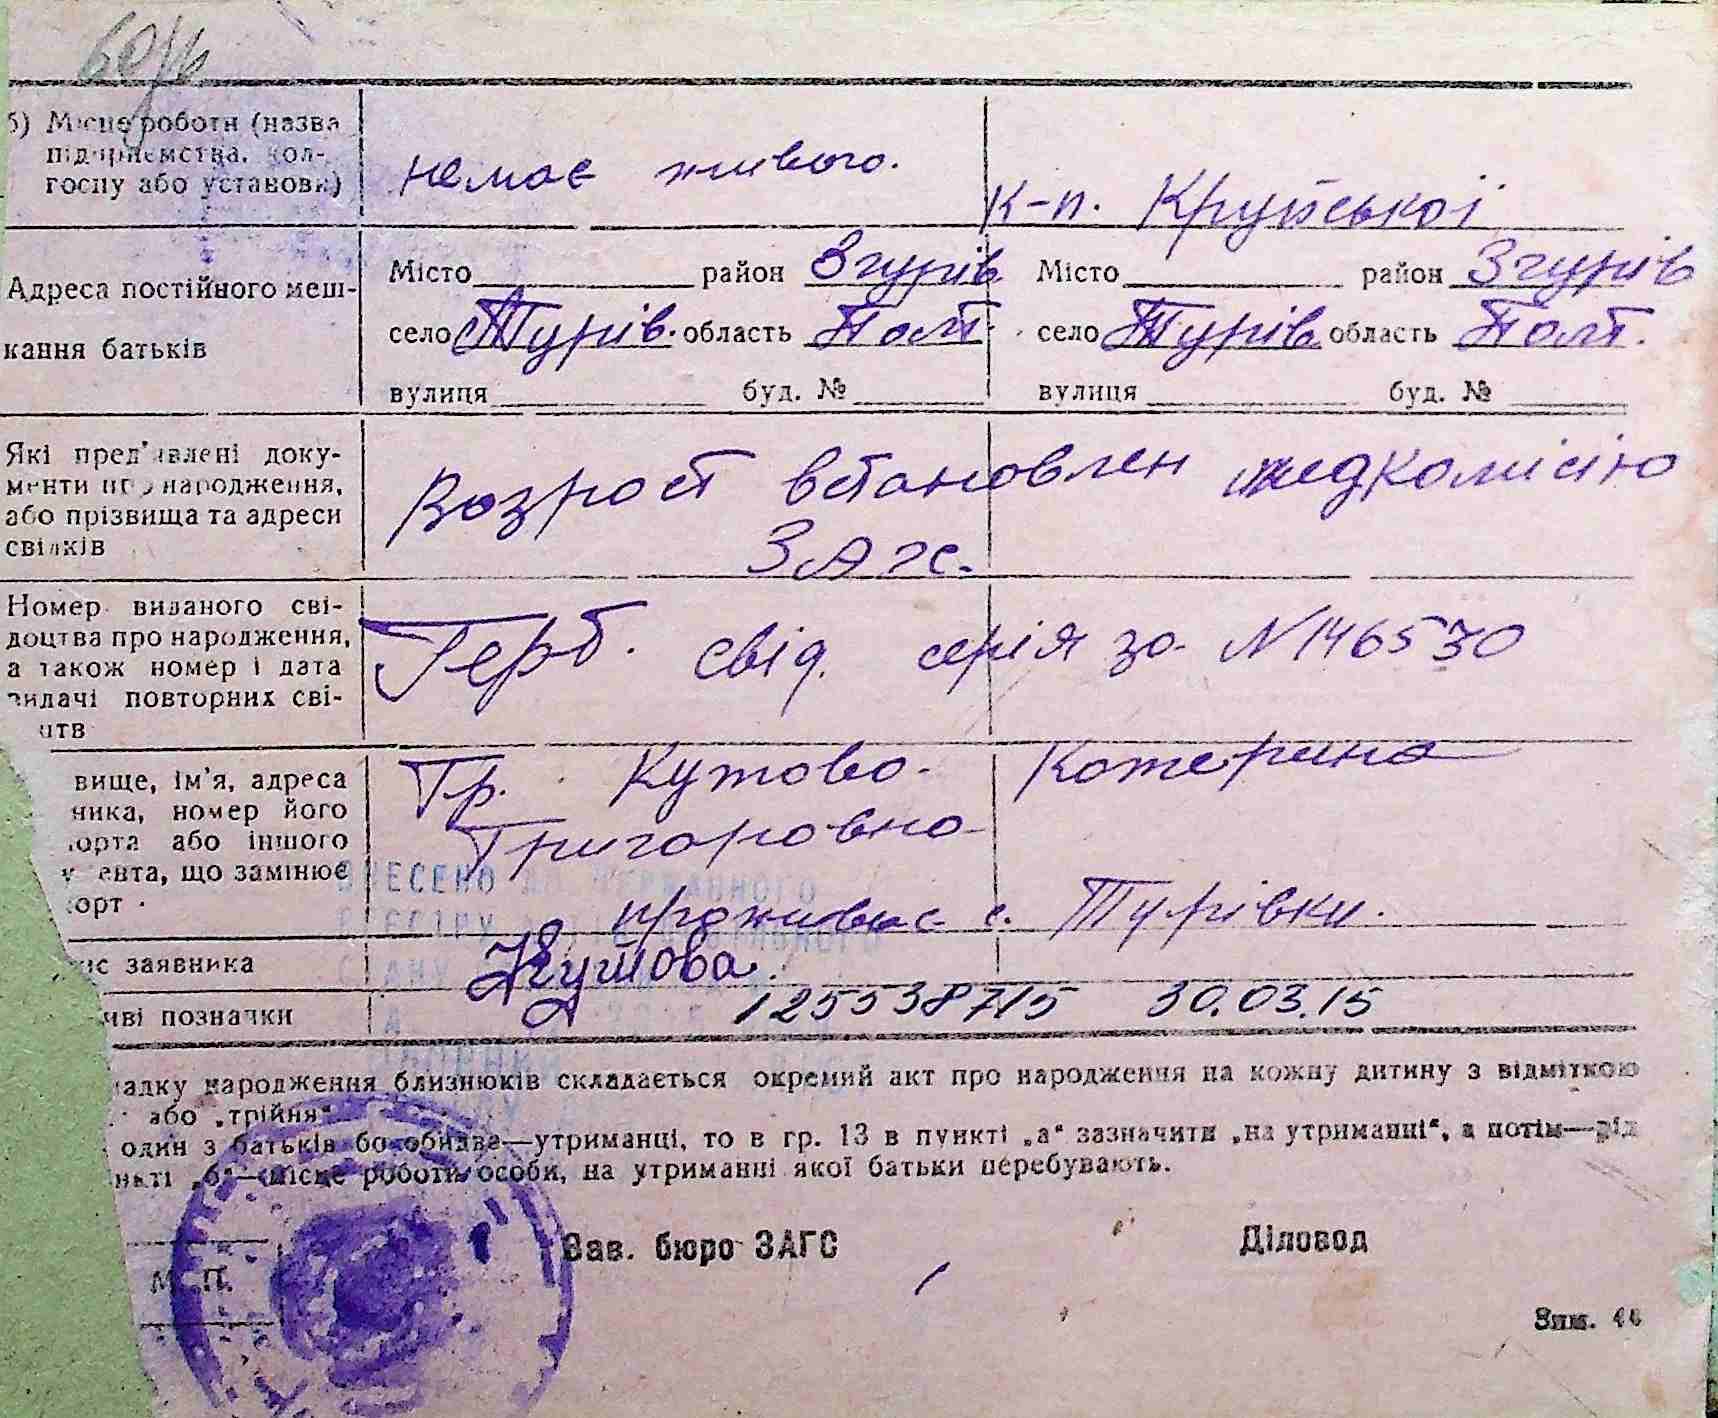 б) Місце роботи (назва
підприємства, кол-
госпу або установи)
немає живого.
к-п. Крупської
Адреса постійного меш-
кання батьків
Місто район Згурів Місто район Згурів
село Турів. область Полт. село Турів область Полт.
вулиця буд. № вулиця буд. №
Які пред'явлені доку-
менти про народження,
або прізвища та адреси
свідків
Возрост встановлен медкомісією
ЗАГС.
Номер виданого сві-
доцтва про народження,
а також номер і дата
видачі повторних сві-
цтв
Герб. свід. серія за. N 146530
вище, ім'я, адреса
ника, номер його
орта або іншого
ента, що замінює
орт
Гр. Кутова Катерина
Григоровна
проживає с. Турівки.
ВНЕСЕНО ДО ДЕРЖАВНОГО
РЕЄСТРУ
СТАНУ
ис заявника
Кутова.
иві позначки
12553871/5 30.03.15
адку народження близнюків складається окремий акт про народження на кожну дитину з відміткою
або „трійня“
один з батьків або обидва—утриманці, то в гр. 13 в пункті „а“ зазначити „на утриманні“, а потім—під
нкті „б“—місце роботи особи, на утриманні якої батьки перебувають.
М. П.
Зав. бюро ЗАГС Діловод
Зим. 44